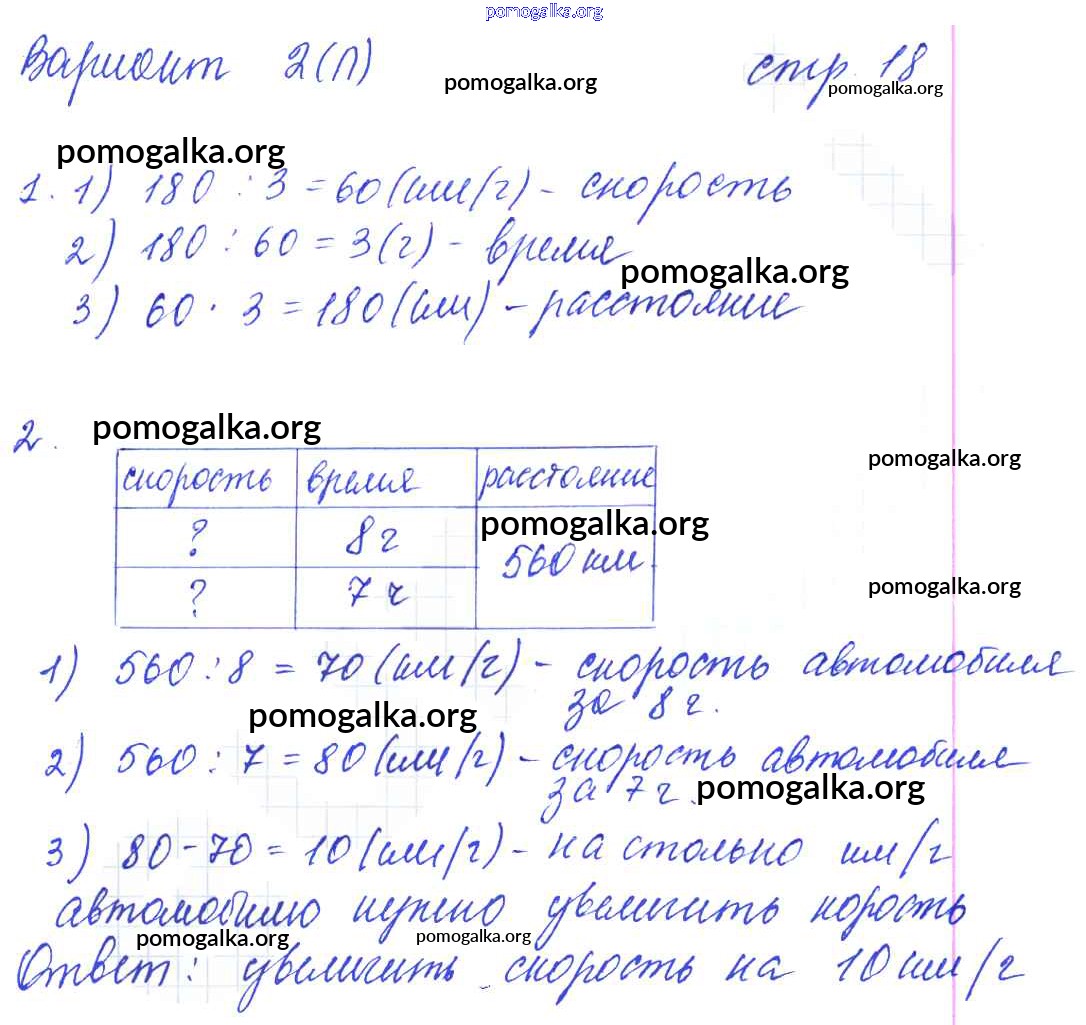 pomogalka.org
Вариант 2(П) pomogalka.org стр. 18
pomogalka.org
pomogalka.org
1. 1) 180 : 3 = 60 (км/ч) - скорость
2) 180 : 60 = 3 (ч) - время
pomogalka.org
3) 60 · 3 = 180 (км) - расстояние
2. pomogalka.org
pomogalka.org
скорость время расстояние
? 8 ч pomogalka.org
560 км
? 7 ч pomogalka.org
1) 560 : 8 = 70 (км/ч) - скорость автомобиля
за 8 ч.
pomogalka.org
2) 560 : 7 = 80 (км/ч) - скорость автомобиля
за 7 ч. pomogalka.org
3) 80 - 70 = 10 (км/ч) - на столько км/ч
автомобилю нужно увеличить корость
pomogalka.org pomogalka.org
Ответ: увеличить скорость на 10 км/ч